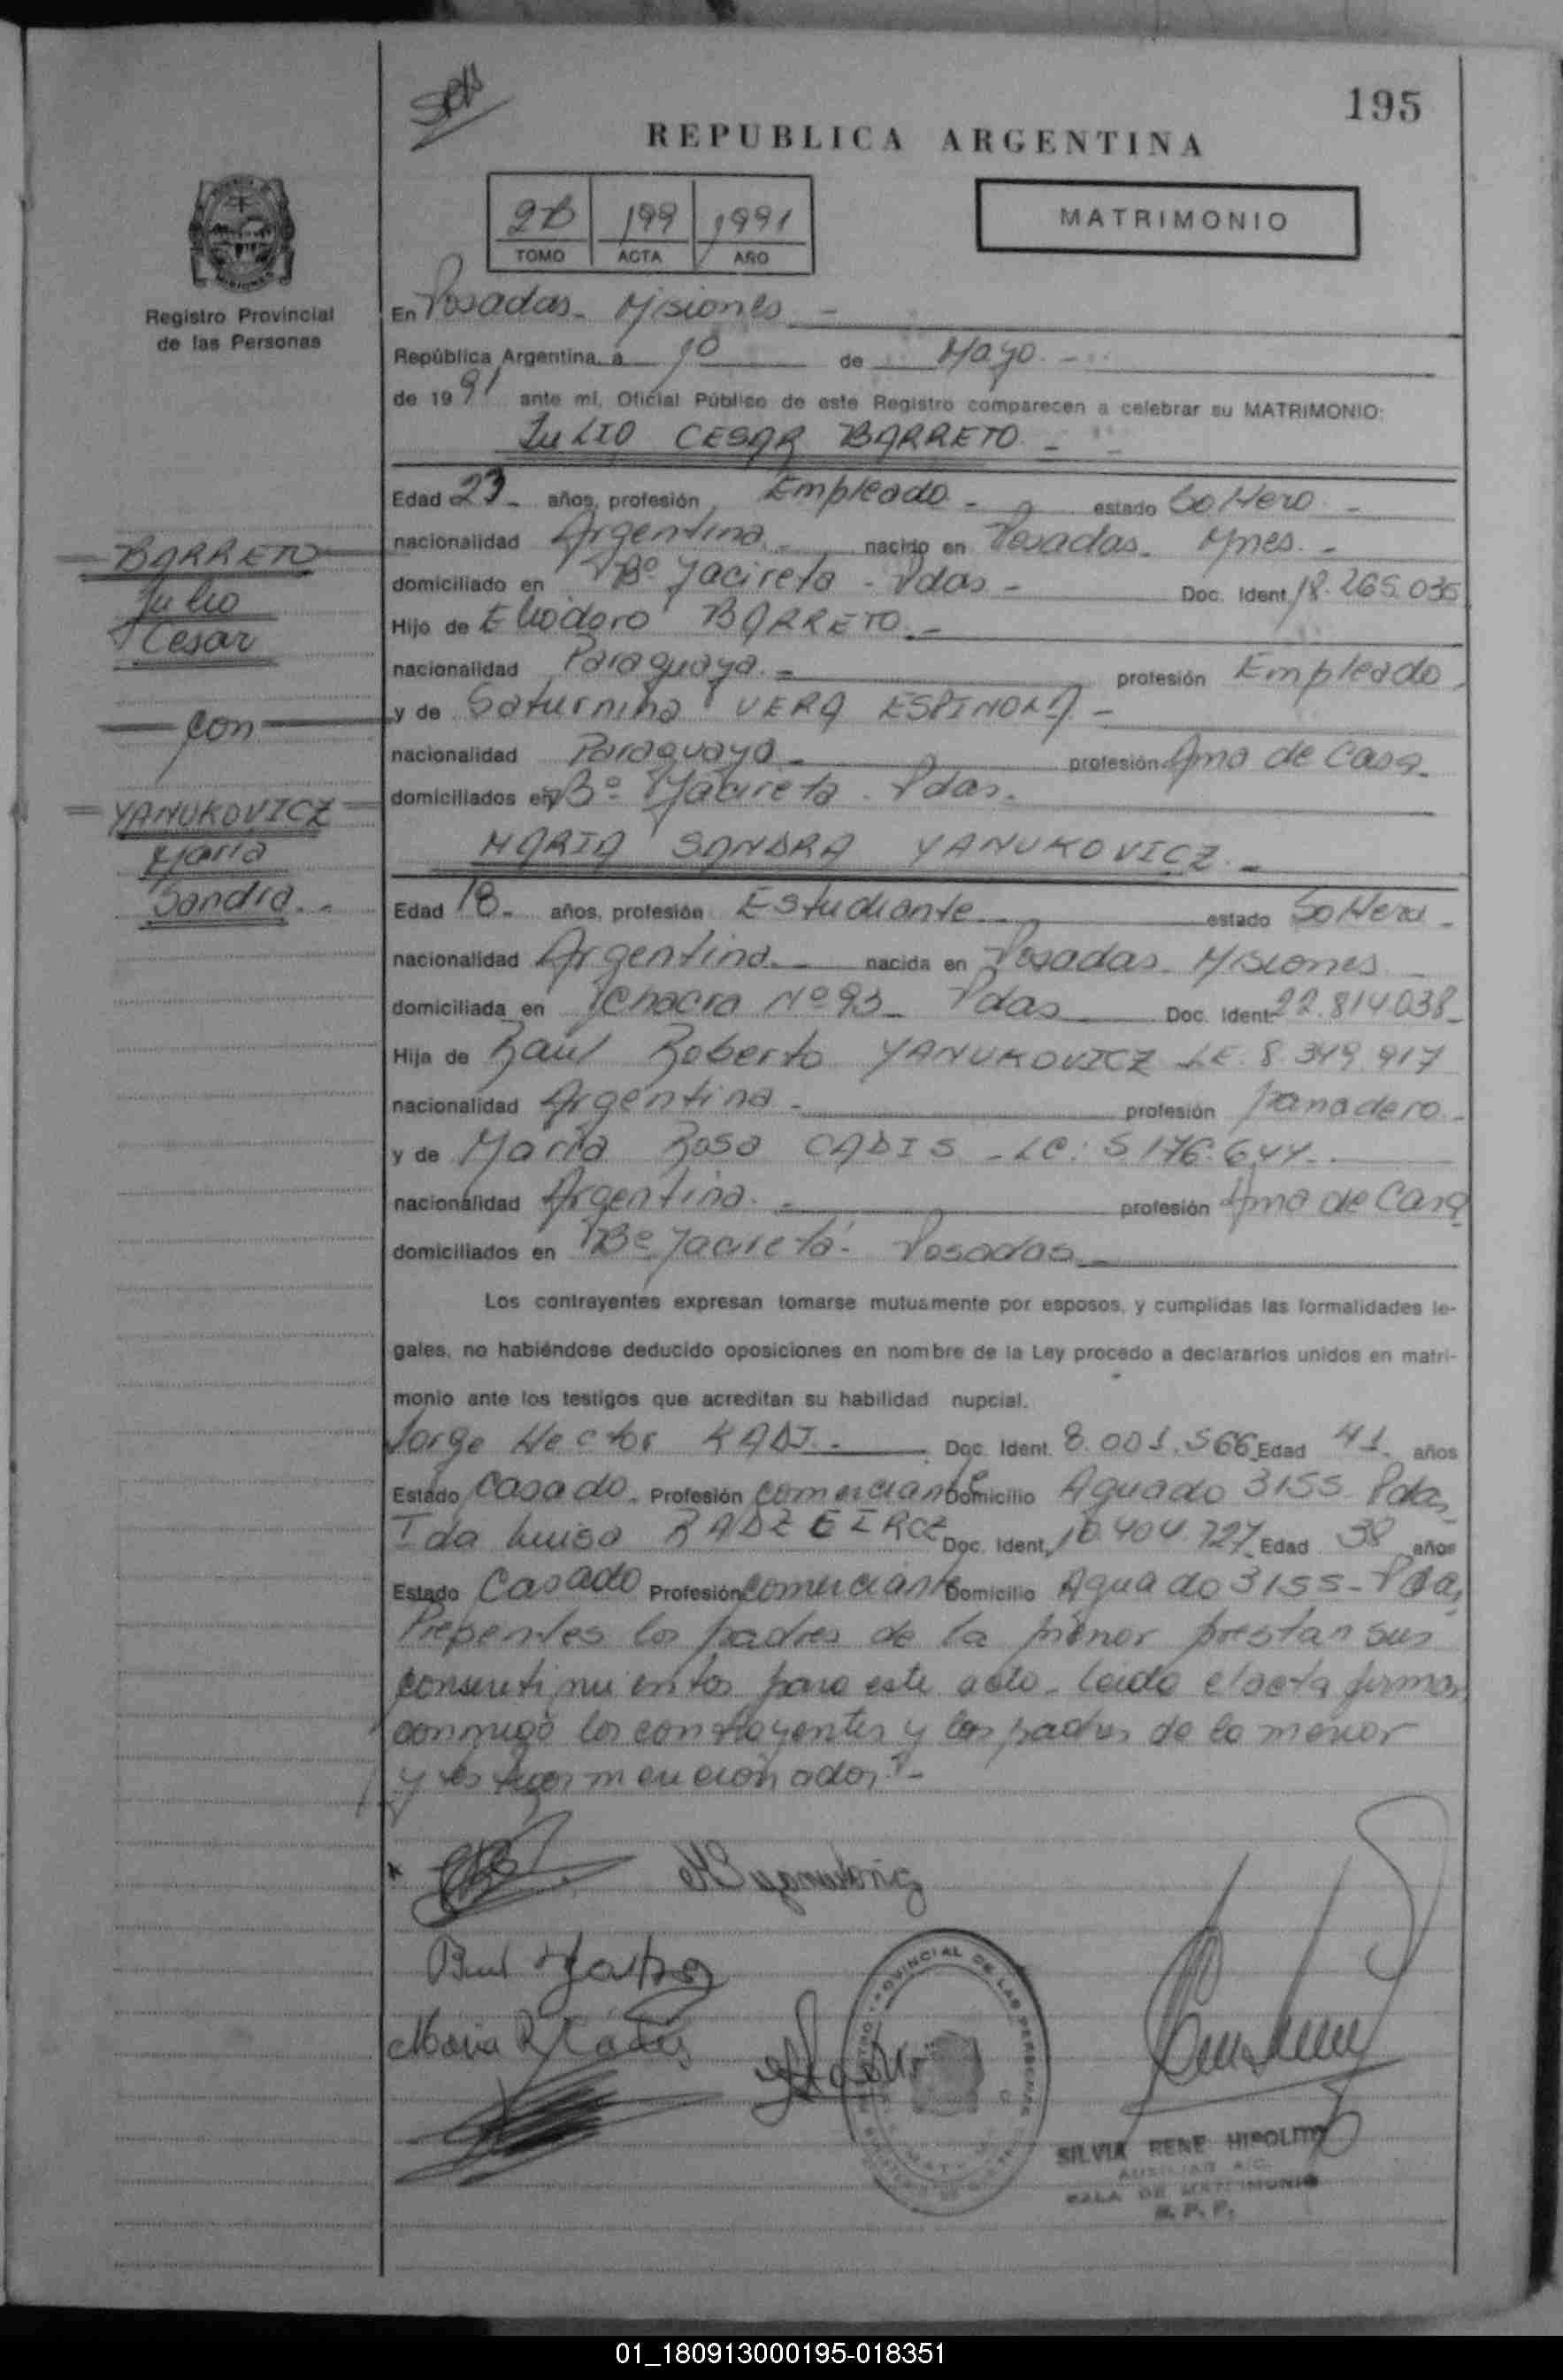 195
REPUBLICA ARGENTINA
2B 199 1991
TOMO ACTA AÑO
MATRIMONIO
Registro Provincial
de las Personas
En Posadas - Misiones -
República Argentina, a 10 de Mayo. -
de 1991 ante mí, Oficial Público de este Registro comparecen a celebrar su MATRIMONIO:
JULIO CESAR BARRETO -
Edad 23 - años, profesión Empleado - estado Soltero -
nacionalidad Argentina - nacido en Posadas - Mnes. -
domiciliado en Bº Jacireta - Pdas - Doc. Ident. 18.265.036
Hijo de Eliodoro BARRETO. -
nacionalidad Paraguaya. - profesión Empleado.
y de Saturnina VERA ESPINOLA -
nacionalidad Paraguaya - profesión Ama de Casa.
domiciliados en Bº Jacireta - Pdas.
MARIA SANDRA YANUKOVICZ. -
Edad 18 - años, profesión Estudiante estado Soltera -
nacionalidad Argentina - nacida en Posadas - Misiones
domiciliada en Chacra Nº 93 - Pdas Doc. Ident. 22.814.038 -
Hija de Raul Roberto YANUKOVICZ LE. 8.349.917
nacionalidad Argentina - profesión panadero -
y de Maria Rosa CADIS - LC: 5.176.644 -
nacionalidad Argentina - profesión Ama de Casa
domiciliados en Bº Jacireta - Posadas
Los contrayentes expresan tomarse mutuamente por esposos, y cumplidas las formalidades le-
gales, no habiéndose deducido oposiciones en nombre de la Ley procedo a declararlos unidos en matri-
monio ante los testigos que acreditan su habilidad nupcial.
Jorge Hector KADI - Doc. Ident. 8.001.566 Edad 41 años
Estado Casado. Profesión comerciante Domicilio Aguado 3155 Pdas
Ida Luisa Doc. Ident. 10.404.727 Edad 38 años
Estado Casado Profesión comerciante Domicilio Aguado 3155 - Pdas
Presentes los padres de la menor prestan sus
consentimientos para este acto - leida el acta firman
conmigo los contrayentes y los padres de la menor
y mencionados -
BARRETO
Julio
Cesar
con
YANUKOVICZ
Maria
Sandra. -
Maria R Cadis
SILVIA RENE HIPOLITO
AUXILIAR A/C.
SALA DE MATRIMONIO
R. P. P.
01_180913000195-018351